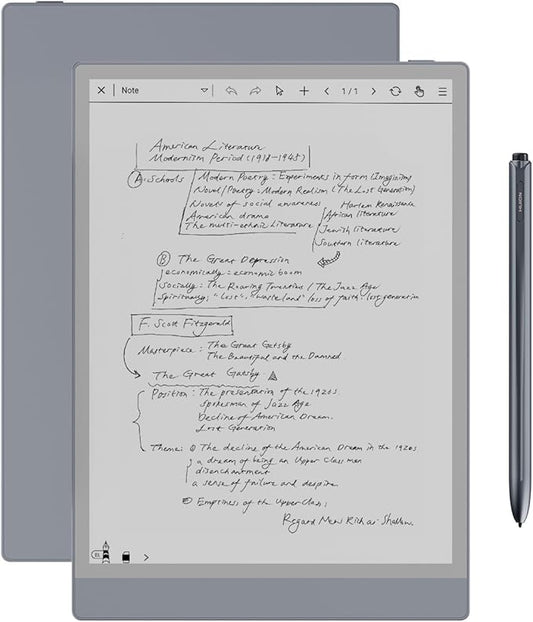 Note
1/1
American Literature
Modernism Period (1918-1945)
A. Schools
Modern Poetry: Experiments in form (Imaginism)
Novel/Poetry: Modern Realism (The Lost Generation)
Novels of social awareness
Harlem Renaissance
American drama
African literature
The multi-ethnic Literature
Jewish literature
Southern literature
B The Great Depression
economically: economic boom
Socially: The Roaring Twenties / The Jazz Age
Spiritually: "Lost", "wasteland" loss of faith: lost generation
F. Scott Fitzgerald
Masterpiece: The Great Gatsby
The Beautiful and the Damned
The Great Gatsby
Position: The presentation of the 1920s.
spokesman of Jazz Age
Decline of American Dream.
Lost Generation
Theme: ① The decline of the American Dream in the 1920s
a dream of being an Upper Class man
disenchantment
a sense of failure and despire
② Emptiness of the Upper Class:
Regard Men Rich as Shallow.
HUION